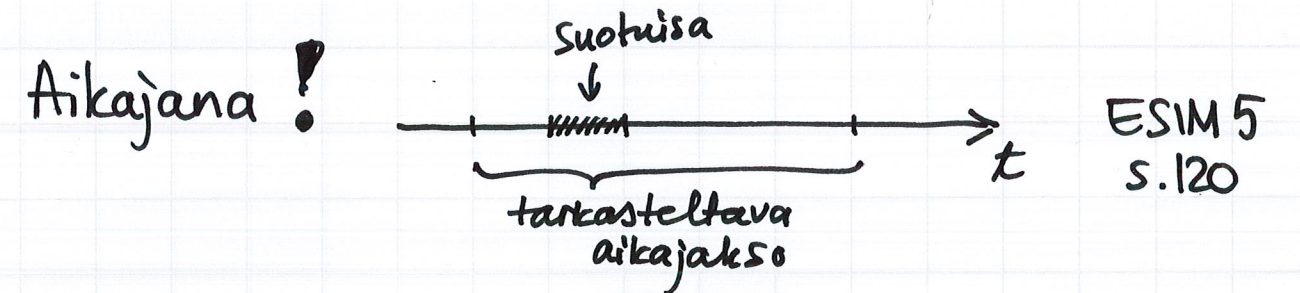 Aikajana !
suotuisa
t
tarkasteltava
aikajakso
ESIM 5
s.120